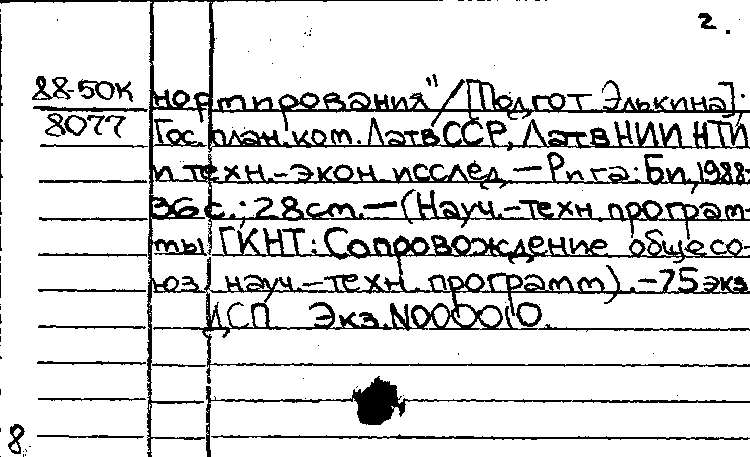 2.
88-50К нормирования" / [Подгот. Элькина];
8077 Гос. план. ком. ЛатвССР, ЛатвНИИНТИ
и техн.-экон. исслед. — Рига: Б.и., 1988-
36 с.; 28 cm. — (Науч.-техн. програм-
мы ГКНТ: Сопровождение общесо-
юз. науч.-техн. программ). - 75 экз.
ДСП Экз. N000010.
8